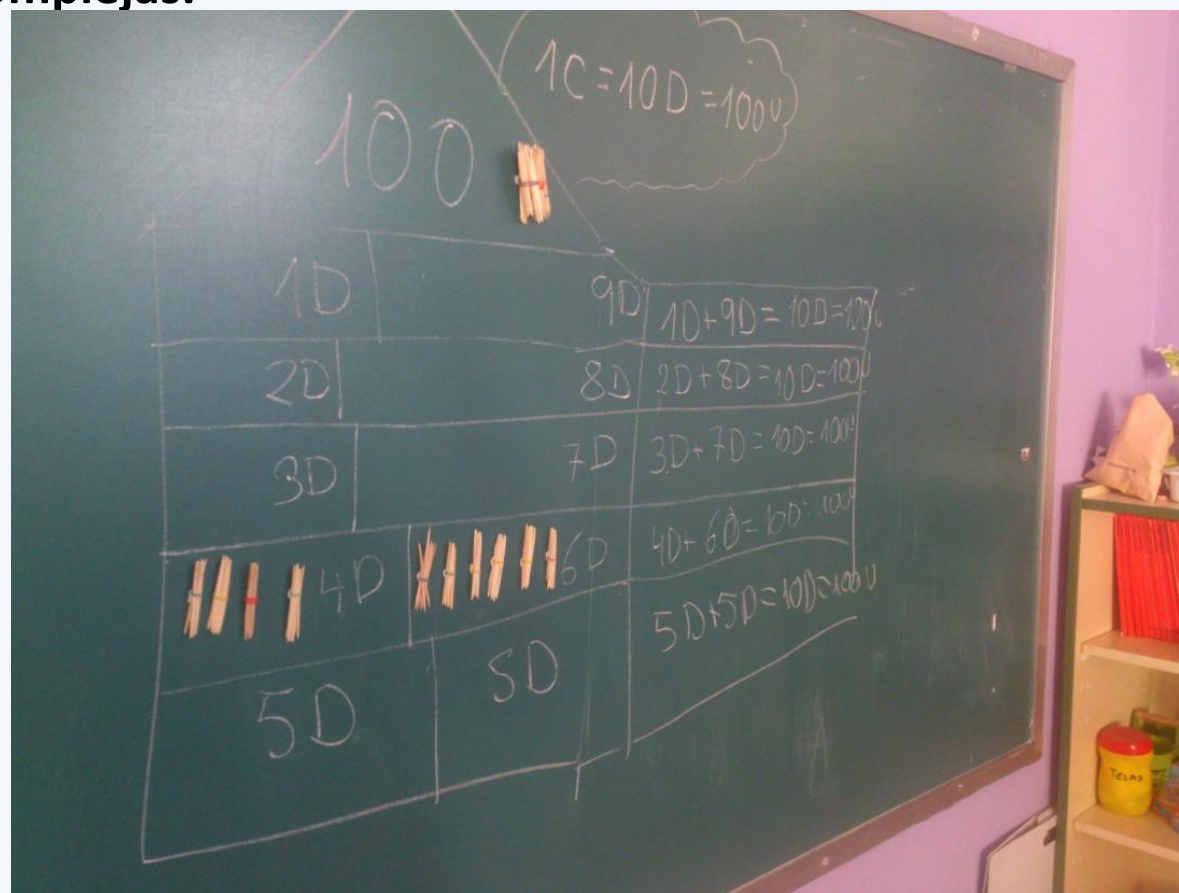 1C=10D=100U
100
1D 9D 1D+9D=10D=100U
2D 8D 2D+8D=10D=100U
3D 7D 3D+7D=10D=100U
4D 6D 4D+6D=10D=100
5D 5D 5D+5D=10D=100U
TELAS